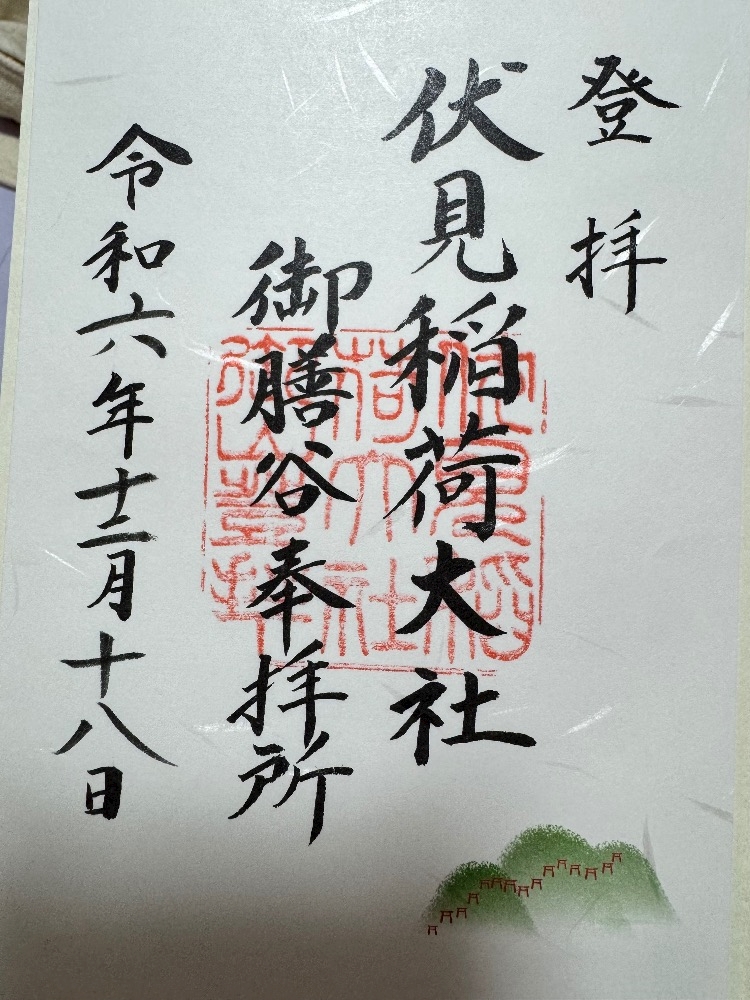 登拝
伏見稲荷大社
御膳谷奉拝所
令和六年十二月十八日